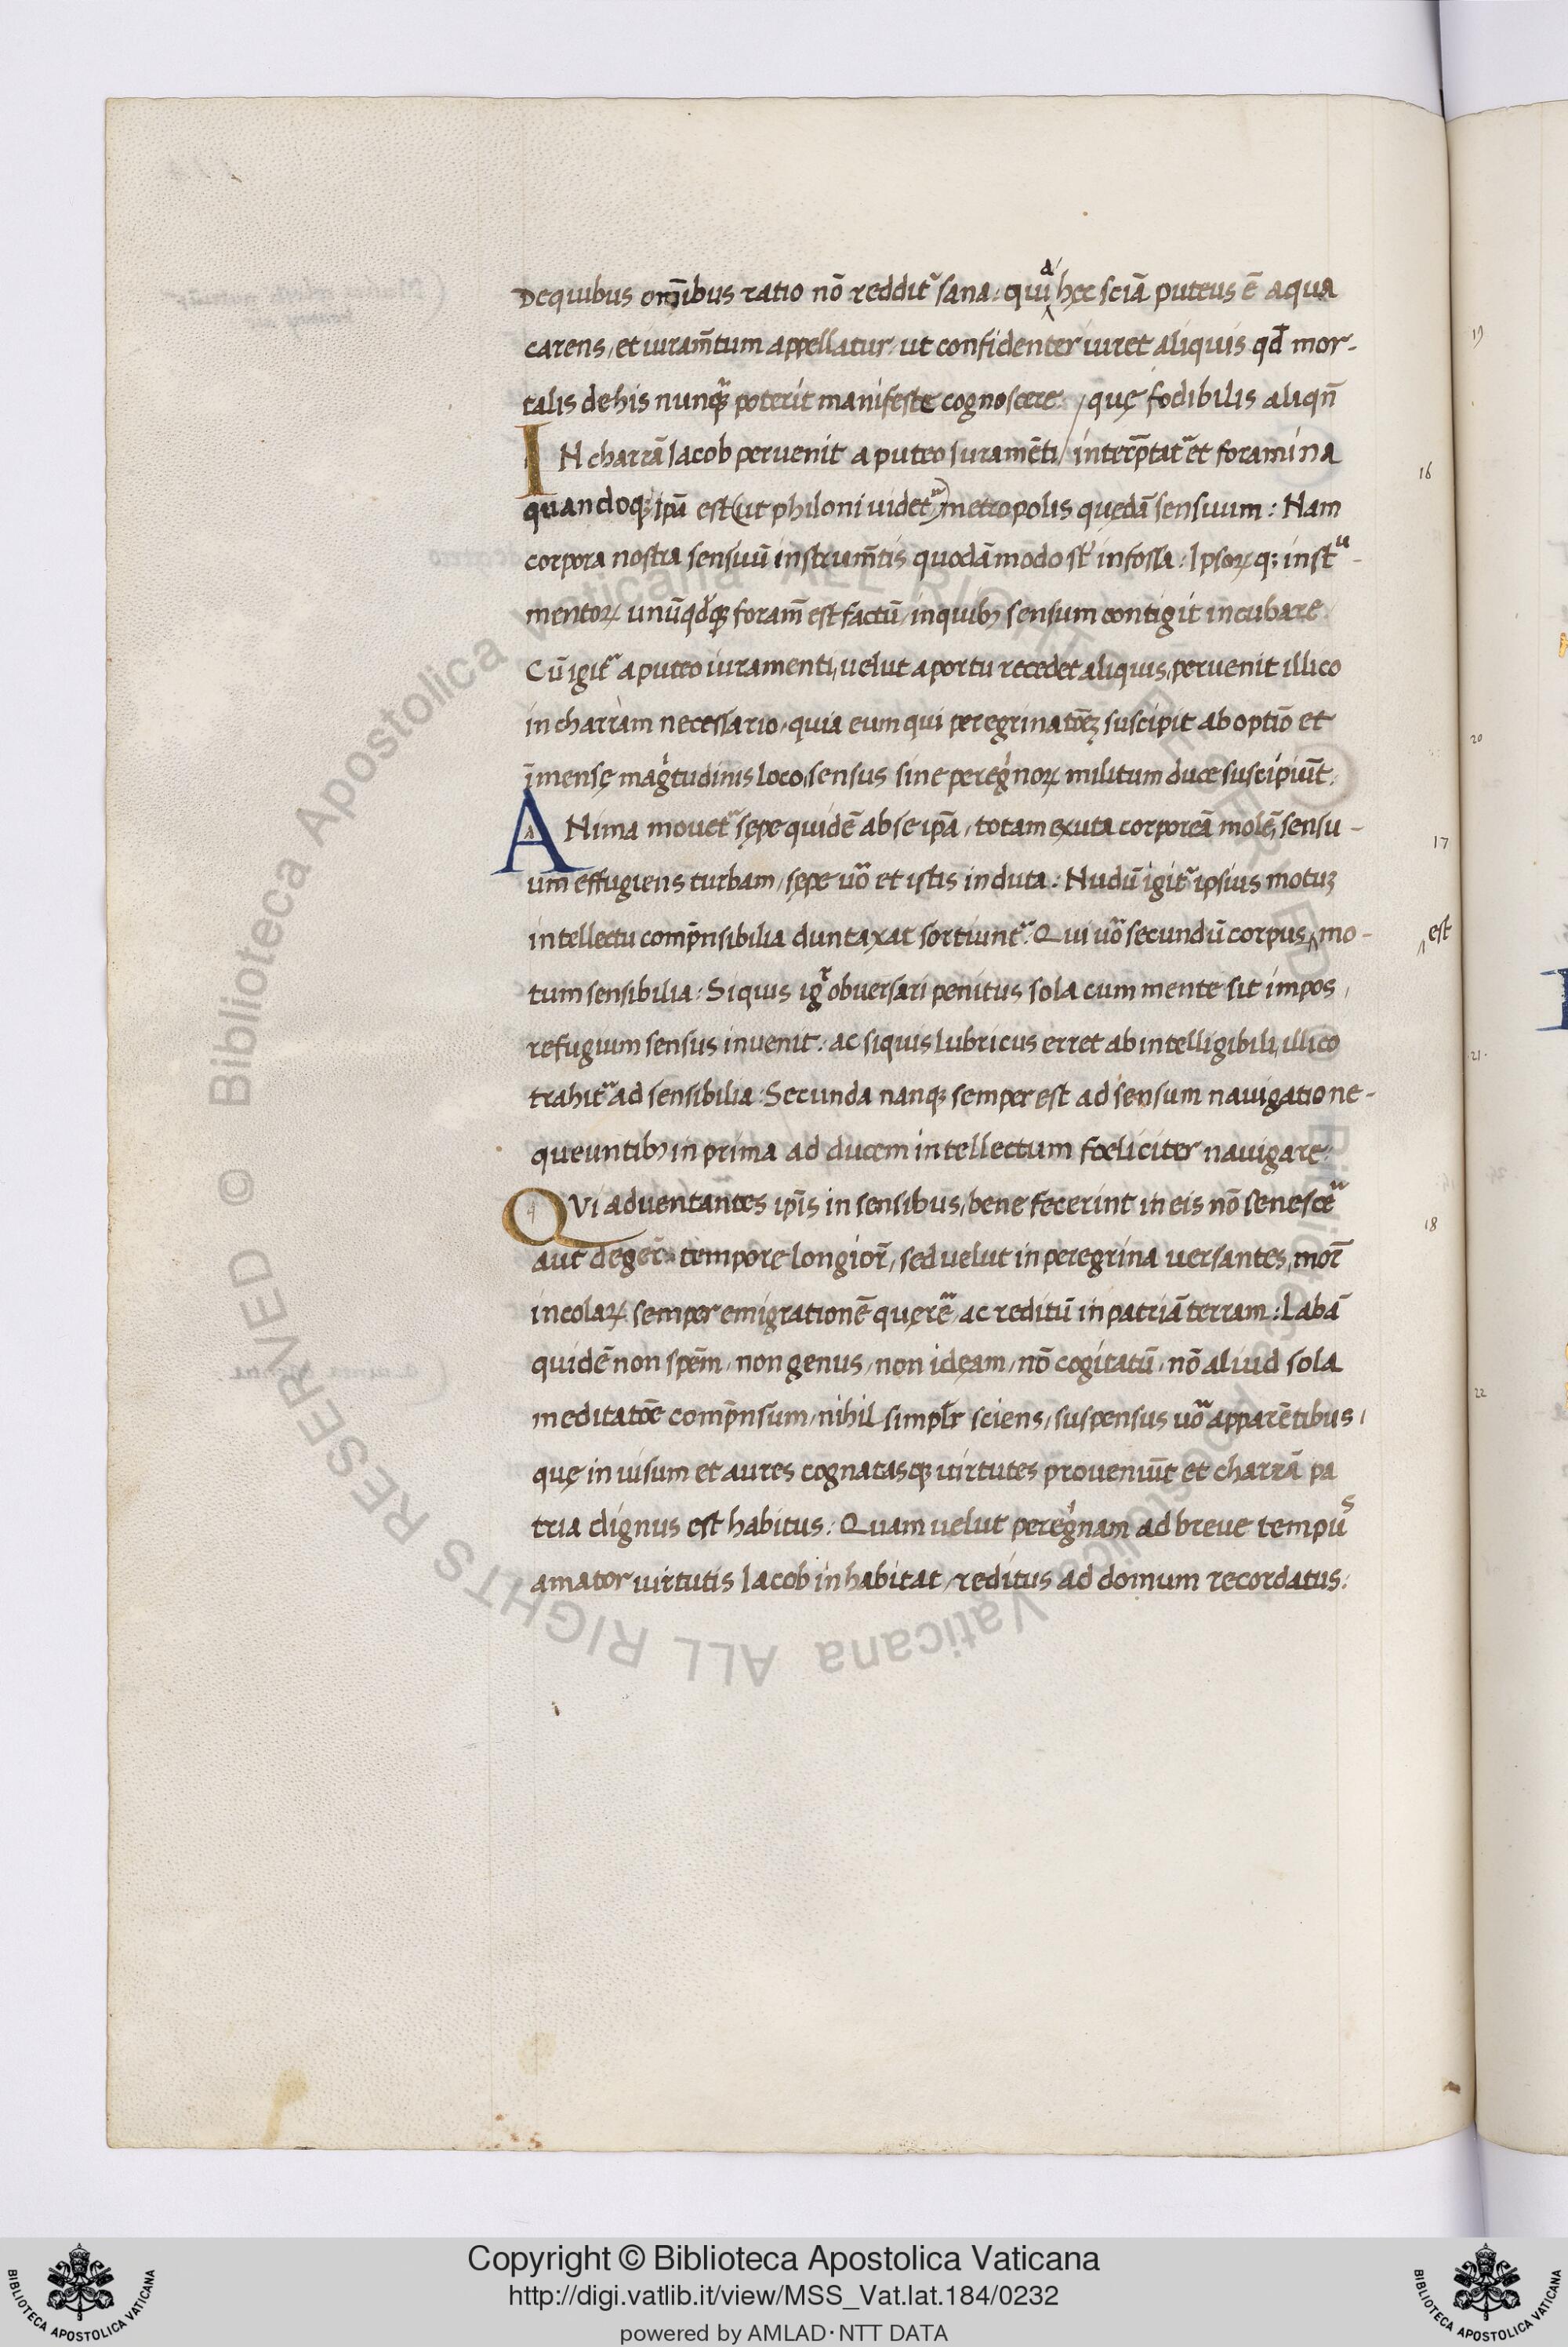 Dequibus om̄ibus ratio nō reddit᷑ sana: quia hęc sciā puteus ē aqua
carens, et iuram̄tum appellatur, ut confidenter iuret aliquis qđ mor-
talis de his nunq̃ poterit manifeste cognoscere. / quę fodibilis aliqn̄
IN charrā Iacob pervenit a puteo iuramēti / interp̄tat᷑ et foramina
quandoq; ip̄a est (ut philoni videt᷑) metropolis quędā sensuum: Nam
corpora nostra sensuū instrum̄tis quodāmodo st̄ infossa: Ipsoꝝ q; inst᷑u-
mentoꝝ unūqđq; foram̄ est factū, in quibꝫ sensum contigit incubare
Cū igit᷑ a puteo iuramenti, velut a portu recedet aliquis, pervenit illico
in charram necessario, quia eum qui peregrinatōeꝫ suscipit ab optīo et
īmensę mag̓tudinis loco, sensus sine pereg̓noꝝ militum duce suscipiūt.
ANima movet᷑ sępe quidē ab se ip̄a, totam exuta corporeā molē, sensu-
um effugiens turbam, sępe uō et istis induta: Nudū igit᷑ ipsius motuꝫ
intellectu comp̄nsibilia duntaxat sortiunt᷑. Qui uō secundū corpus, mo-
est
tum sensibilia: Siquis ig᷑ obversari penitus sola cum mente sit impos,
refugium sensus invenit: ac siquis lubricus erret ab intelligibili, illico
trahit᷑ ad sensibilia: Secunda nanq; semper est ad sensum navigatio ne-
queuntibꝫ in prima ad ducem intellectum fœliciter navigare.
QVi adventantes ip̄is in sensibus, bene fecerint in eis nō senescē
aut deger̄ tempore longior̄, sed velut in peregrina versantes, mor̄
incolaꝝ semper emigrationē quęrē ac reditū in patriā terram: Labā
quidē non spēm, non genus, non idęam, nō cogitatū, nō aliud sola
meditatōe comp̄nsum, nihil simpłr sciens, suspensus uō apparētibus,
quę in visum et aures cognatasq; virtutes proveniūt et charrā pa
tria dignus est habitus: Quam velut pereg̓nam ad breve tempus
amator virtutis Iacob inhabitat, reditus ad domum recordatus:
16
17
18
19
20
21.
22
Copyright © Biblioteca Apostolica Vaticana
http://digi.vatlib.it/view/MSS_Vat.lat.184/0232
powered by AMLAD·NTT DATA
© Biblioteca Apostolica Vaticana ALL RIGHTS RESERVED
BIBLIOTECA APOSTOLICA VATICANA
BIBLIOTECA APOSTOLICA VATICANA